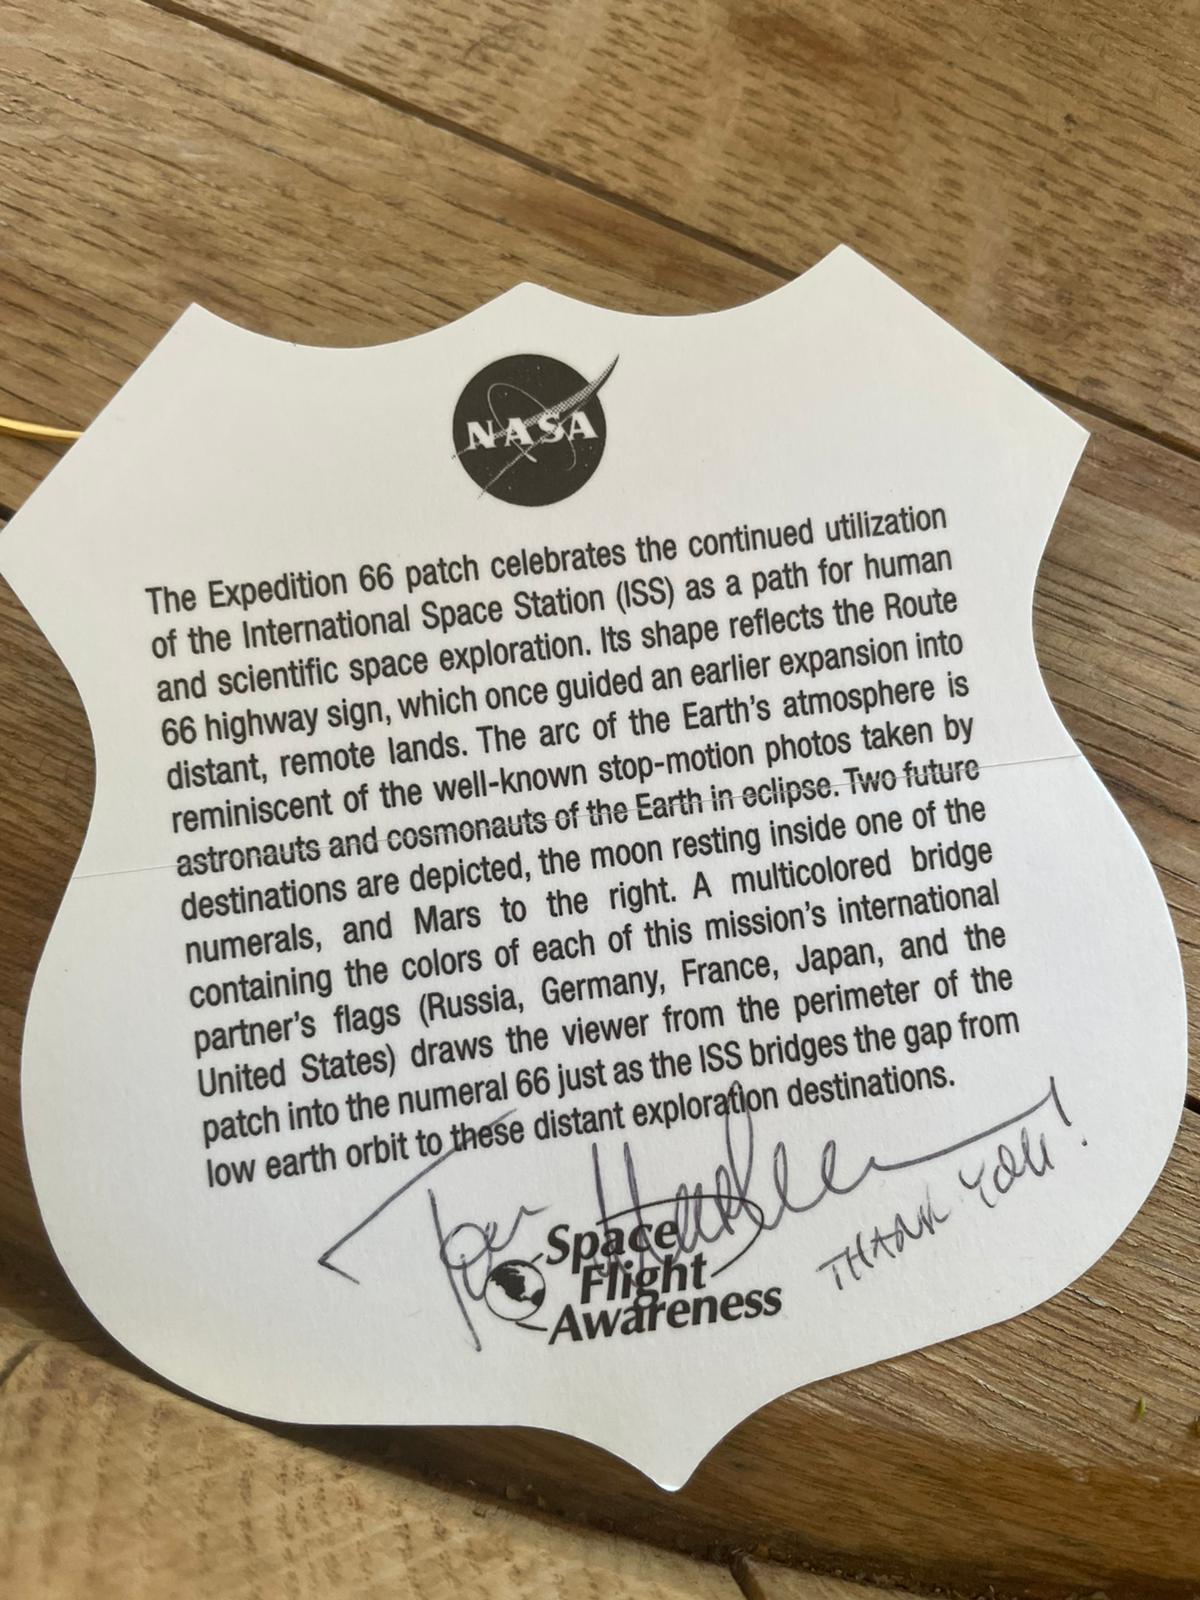 NASA
The Expedition 66 patch celebrates the continued utilization
of the International Space Station (ISS) as a path for human
and scientific space exploration. Its shape reflects the Route
66 highway sign, which once guided an earlier expansion into
distant, remote lands. The arc of the Earth's atmosphere is
reminiscent of the well-known stop-motion photos taken by
astronauts and cosmonauts of the Earth in eclipse. Two future
destinations are depicted, the moon resting inside one of the
numerals, and Mars to the right. A multicolored bridge
containing the colors of each of this mission's international
partner's flags (Russia, Germany, France, Japan, and the
United States) draws the viewer from the perimeter of the
patch into the numeral 66 just as the ISS bridges the gap from
low earth orbit to these distant exploration destinations.
THANK YOU!
Space
Flight
Awareness